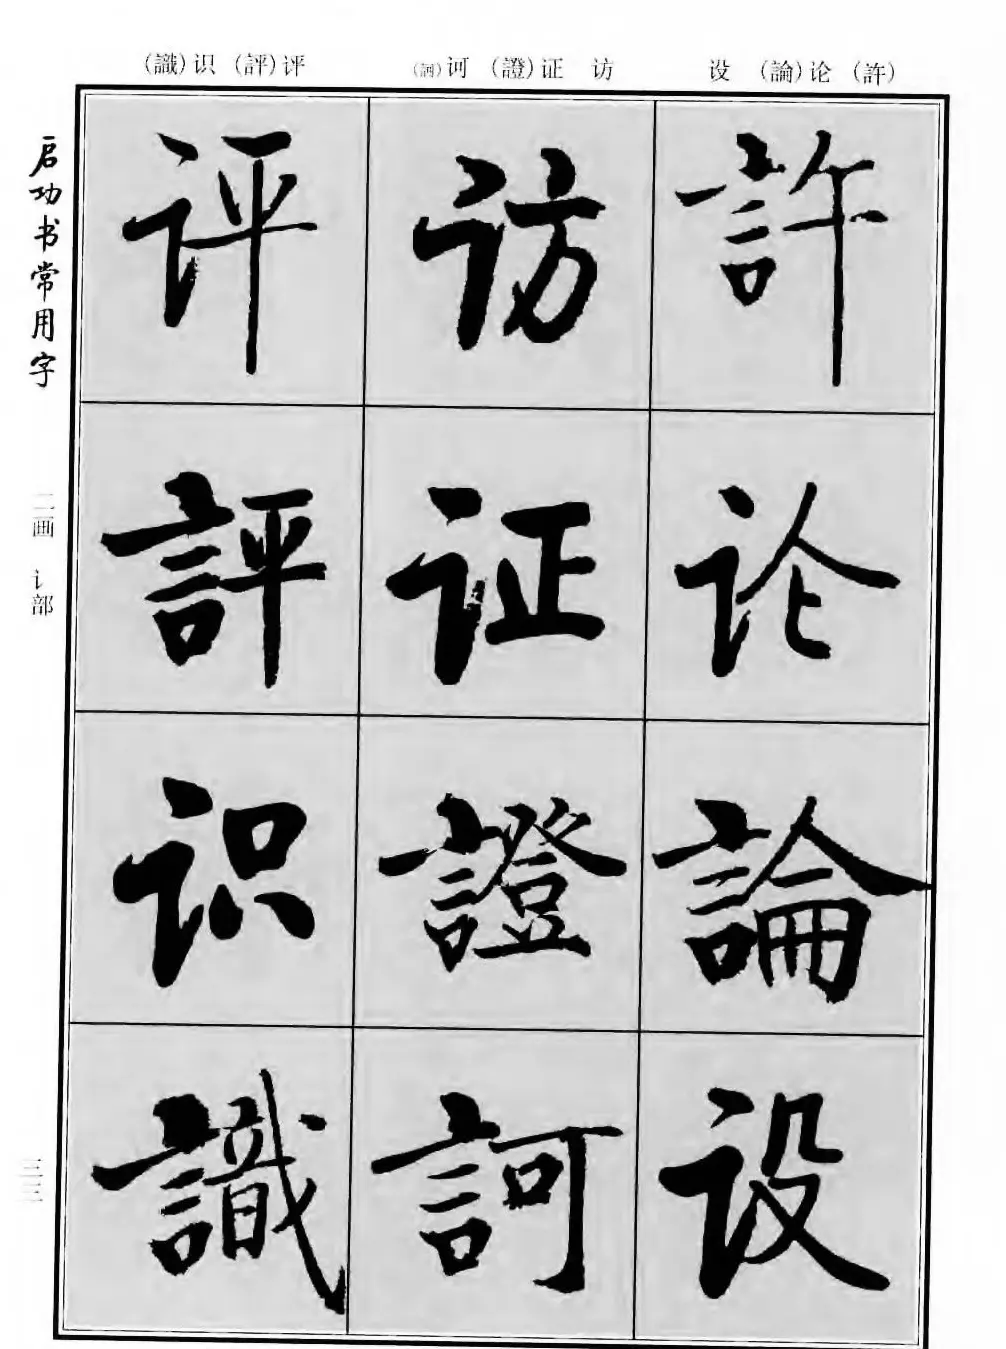 (許) 论(論) 设
访 证(證) 诃(訶)
评(評) 识(識)
許
论
論
设
访
证
證
訶
评
評
识
識
启功书常用字
二画 讠部
三三